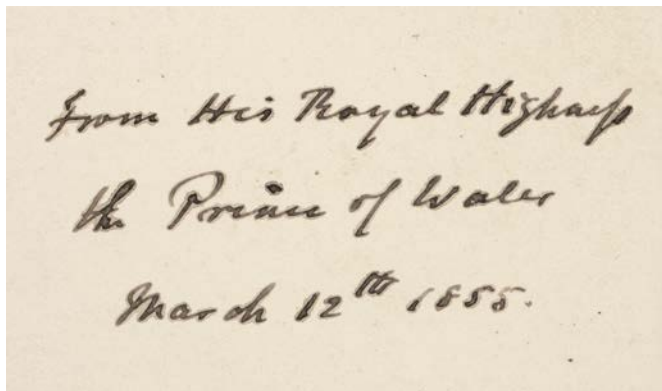 From His Royal Highness
the Prince of Wales
March 12th 1855.